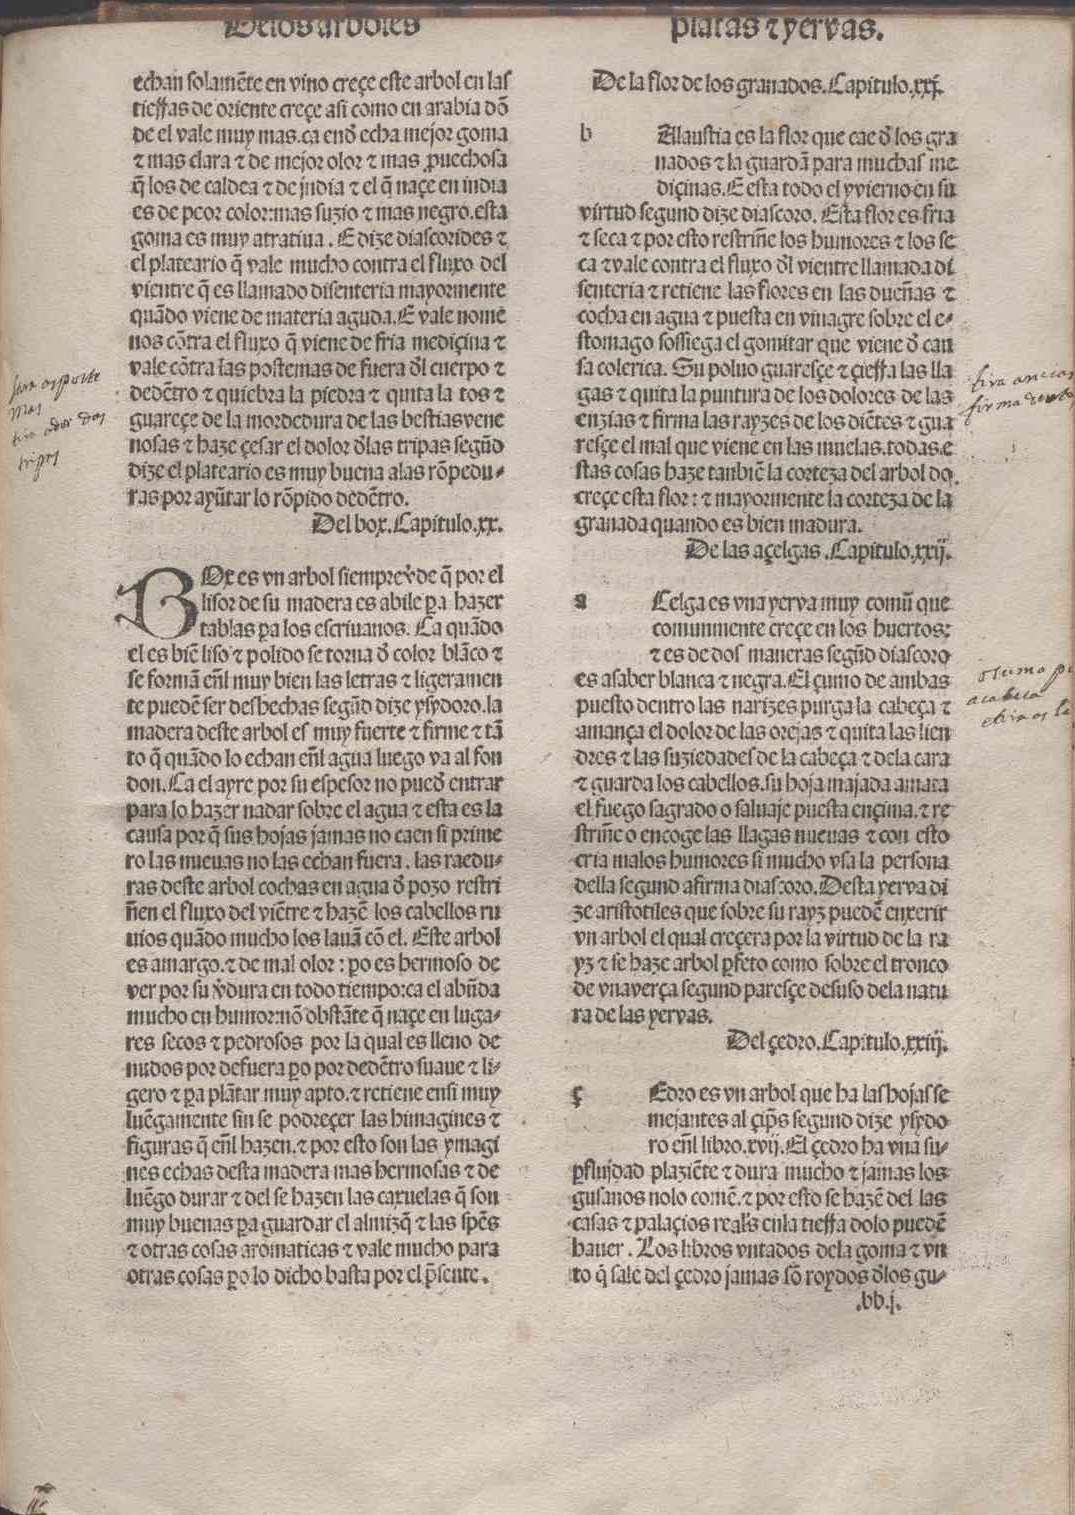 Delos arboles
plãtas ⁊ yervas.
echan solamẽte en vino creçe este arbol en las
tierras de oriente creçe asi como en arabia dõ
de el vale muy mas.ca enđ echa mejor goma
⁊ mas clara ⁊ de mejor olor ⁊ mas ꝓuechosa
q̃ los de caldea ⁊ de judia ⁊ el q̃ naçe en india
es de peor color:mas suzio ⁊ mas negro.esta
goma es muy atratiua. E dize diascorides ⁊
el plateario q̃ vale mucho contra el fluxo del
vientre q̃ es llamado disenteria mayormente
quãdo viene de materia aguda.E vale nome
nos cõtra el fluxo q̃ viene de fria mediçina ⁊
vale cõtra las postemas de fuera đl cuerpo ⁊
dedẽtro ⁊ quiebra la piedra ⁊ quita la tos ⁊
guareçe de la mordedura de las bestias vene
nosas ⁊ haze çesar el dolor đlas tripas segũd
dize el plateario es muy buena alas rõpedu-
ras por ayũtar lo rõpido dedẽtro.
Del box.Capitulo.xx.
BOx es vn arbol siempre v̾de q̃ por el
lisor de su madera es abile ꝑa hazer
tablas ꝑa los escriuanos. Ca quãdo
el es biẽ liso ⁊ polido se torna đ color blãco ⁊
se formã eñl muy bien las letras ⁊ ligeramen
te puedẽ ser deshechas segũd dize ysydoro.la
madera deste arbol es muy fuerte ⁊ firme ⁊ tã
to q̃ quãdo lo echan eñl agua luego va al fon
don.Ca el ayre por su espesor no pueđ entrar
para lo hazer nadar sobre el agua ⁊ esta es la
causa por q̃ sus hojas jamas no caen si prime
ro las nueuas no las echan fuera. las raedu-
ras deste arbol cochas en agua đ pozo restri
ñen el fluxo del viẽtre ⁊ hazẽ los cabellos ru
uios quãdo mucho los lauã cõ el. Este arbol
es amargo.⁊ de mal olor: ꝑo es hermoso de
ver por su v̾dura en todo tiempo:ca el abũda
mucho en humor:nõ obstãte q̃ naçe en luga-
res secos ⁊ pedrosos por la qual es lleno de
nudos por defuera ꝑo por dedẽtro suaue ⁊ li-
gero ⁊ ꝑa plãtar muy apto.⁊ retiene ensi muy
luẽgamente sin se podreçer las himagines ⁊
figuras q̃ eñl hazen.⁊ por esto son las ymagi
nes echas desta madera mas hermosas ⁊ de
luẽgo durar ⁊ del se hazen las caxuelas q̃ son
muy buenas ꝑa guardar el almizq̃ ⁊ las spẽs
⁊ otras cosas aromaticas ⁊ vale mucho para
otras cosas ꝑo lo dicho basta por el p̃sente.
De la flor de los granados.Capitulo.xxj.
b Alaustia es la flor que cae đ los gra
nados ⁊ la guardã para muchas me
diçinas.E esta todo el yvierno en su
virtud segund dize diascoro. Esta flor es fria
⁊ seca ⁊ por esto restriñe los humores ⁊ los se
ca ⁊ vale contra el fluxo đl vientre llamada di
senteria ⁊ retiene las flores en las dueñas ⁊
cocha en agua ⁊ puesta en vinagre sobre el e-
stomago sossiega el gomitar que viene đ cau
sa colerica. Su poluo guaresçe ⁊ çierra las lla
gas ⁊ quita la puntura de los dolores de las
enzias ⁊ firma las rayzes de los diẽtes ⁊ gua
resçe el mal que viene en las muelas.todas e
stas cosas haze tanbiẽ la corteza del arbol do
creçe esta flor: ⁊ mayormente la corteza de la
granada quando es bien madura.
De las açelgas.Capitulo.xxij.
a Celga es vna yerva muy comũ que
comunmente creçe en los huertos:
⁊ es de dos maneras segũd diascoro
es asaber blanca ⁊ negra.El çumo de ambas
puesto dentro las narizes purga la cabeça ⁊
amança el dolor de las orejas ⁊ quita las lien
dres ⁊ las suziedades de la cabeça ⁊ dela cara
⁊ guarda los cabellos.su hoja majada amata
el fuego sagrado o saluaje puesta ençima.⁊ re
striñe o encoge las llagas nueuas ⁊ con esto
cria malos humores si mucho vsa la persona
della segund afirma diascoro.Desta yerva di
ze aristotiles que sobre su rayz puedẽ enxerir
vn arbol el qual creçera por la virtud de la ra
yz ⁊ se haze arbol ꝑfeto como sobre el tronco
de vna verça segund paresçe desuso dela natu
ra de las yervas.
Del çedro.Capitulo.xxiij.
ç Edro es vn arbol que ha las hojas se
mejantes al çip̃s segund dize ysydo
ro eñl libro.xvij.El çedro ha vna su-
ꝑflujdad plaziẽte ⁊ dura mucho ⁊ jamas los
gusanos nolo comẽ.⁊ por esto se hazẽ del las
casas ⁊ palaçios reals̃ enla tierra dolo puedẽ
hauer. Los libros vntados dela goma ⁊ vn
to q̃ sale del çedro jamas sõ roydos đlos gu-
.bb.j.
tripas
firma